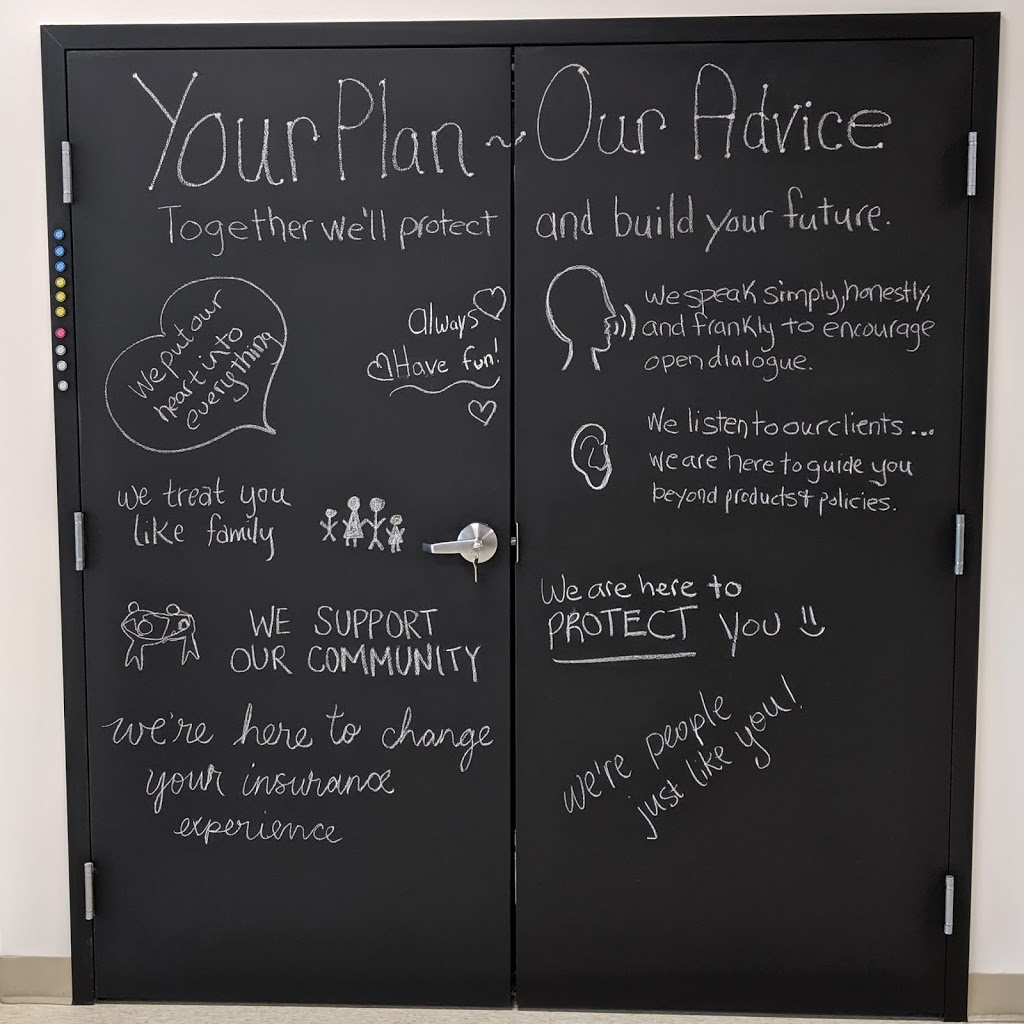 Your Plan ~ Our Advice
Together we'll protect and build your future.
We put our
heart into
everything
always
Have fun!
we treat you
like family
WE SUPPORT
OUR COMMUNITY
we're here to change
your insurance
experience
We speak simply, honestly,
and frankly to encourage
open dialogue.
We listen to our clients...
we are here to guide you
beyond products & policies.
We are here to
PROTECT you
we're people
just like you!